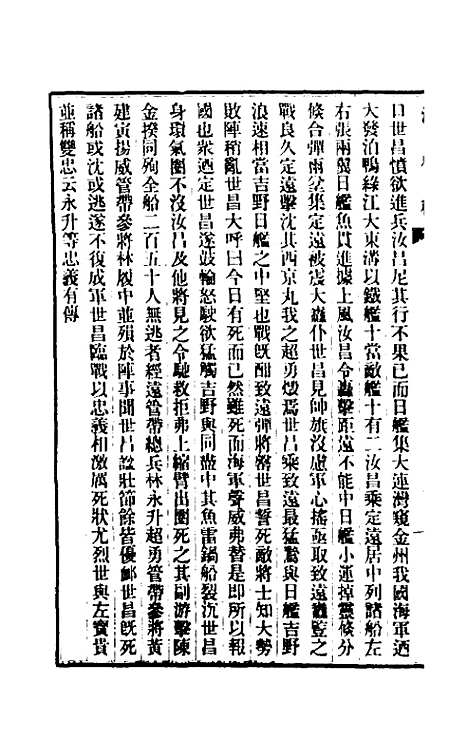 口世昌憤欲進兵汝昌尼其行不果已而日艦集大連灣窺金州我國海軍迺
大發泊鴨綠江大東溝以鐵艦十當敵艦十有二汝昌乘定遠居中列諸船左
右張兩翼日艦魚貫進據上風汝昌令轟擊距遠不能中日艦小運掉靈倏分
倏合彈雨坌集定遠被震大纛仆世昌見帥旗沒慮軍心搖亟取致遠纛豎之
戰良久定遠擊沈其西京丸我之超勇燬焉世昌乘致遠最猛鷙與日艦吉野
浪速相當吉野日艦之中堅也戰旣酣致遠彈將罄世昌誓死敵將士知大勢
敗陣稍亂世昌大呼曰今日有死而已然雖死而海軍聲威弗替是即所以報
國也衆迺定世昌遂鼓輪怒駛欲猛觸吉野與同盡中其魚雷鍋船裂沉世昌
身環氣圈不沒汝昌及他將見之令馳救拒弗上縮臂出圈死之其副游擊陳
金揆同殉全船二百五十人無逃者經遠管帶總兵林永升超勇管帶參將黃
建寅揚威管帶參將林履中並殞於陣事聞世昌諡壯節餘皆優卹世昌旣死
諸船或沈或逃遂不復成軍世昌臨戰以忠義相激厲死狀尤烈世與左寶貴
並稱雙忠云永升等忠義有傳